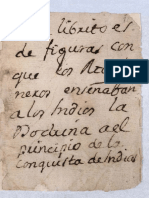 librito es
de figuras con
que los
neros enseñaban
a los Indios la
Doctrina a el
principio de la
Conquista de Indios